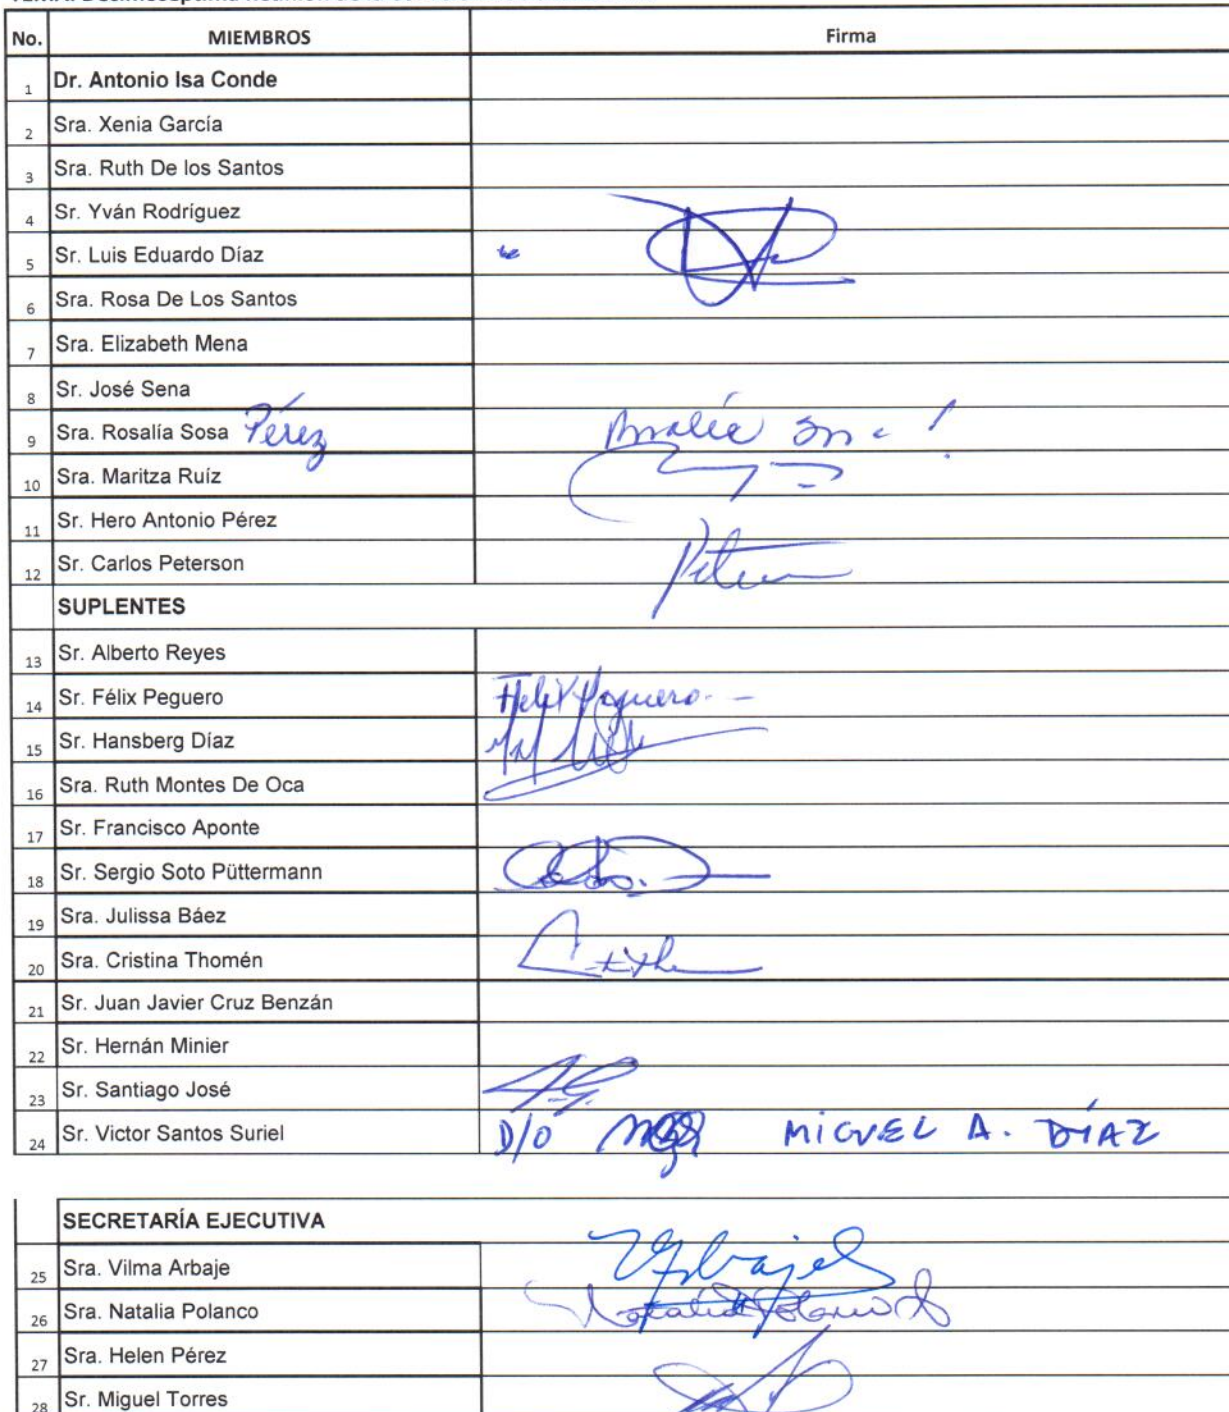 No. MIEMBROS Firma
1 Dr. Antonio Isa Conde
2 Sra. Xenia García
3 Sra. Ruth De los Santos
4 Sr. Yván Rodríguez
5 Sr. Luis Eduardo Díaz
6 Sra. Rosa De Los Santos
7 Sra. Elizabeth Mena
8 Sr. José Sena
9 Sra. Rosalía Sosa Pérez
10 Sra. Maritza Ruíz
11 Sr. Hero Antonio Pérez
12 Sr. Carlos Peterson
SUPLENTES
13 Sr. Alberto Reyes
14 Sr. Félix Peguero Felix Peguero
15 Sr. Hansberg Díaz
16 Sra. Ruth Montes De Oca
17 Sr. Francisco Aponte
18 Sr. Sergio Soto Püttermann
19 Sra. Julissa Báez
20 Sra. Cristina Thomén
21 Sr. Juan Javier Cruz Benzán
22 Sr. Hernán Minier
23 Sr. Santiago José
24 Sr. Victor Santos Suriel D/O MIGUEL A. DÍAZ
SECRETARÍA EJECUTIVA
25 Sra. Vilma Arbaje
26 Sra. Natalia Polanco Natalia Polanco
27 Sra. Helen Pérez
28 Sr. Miguel Torres